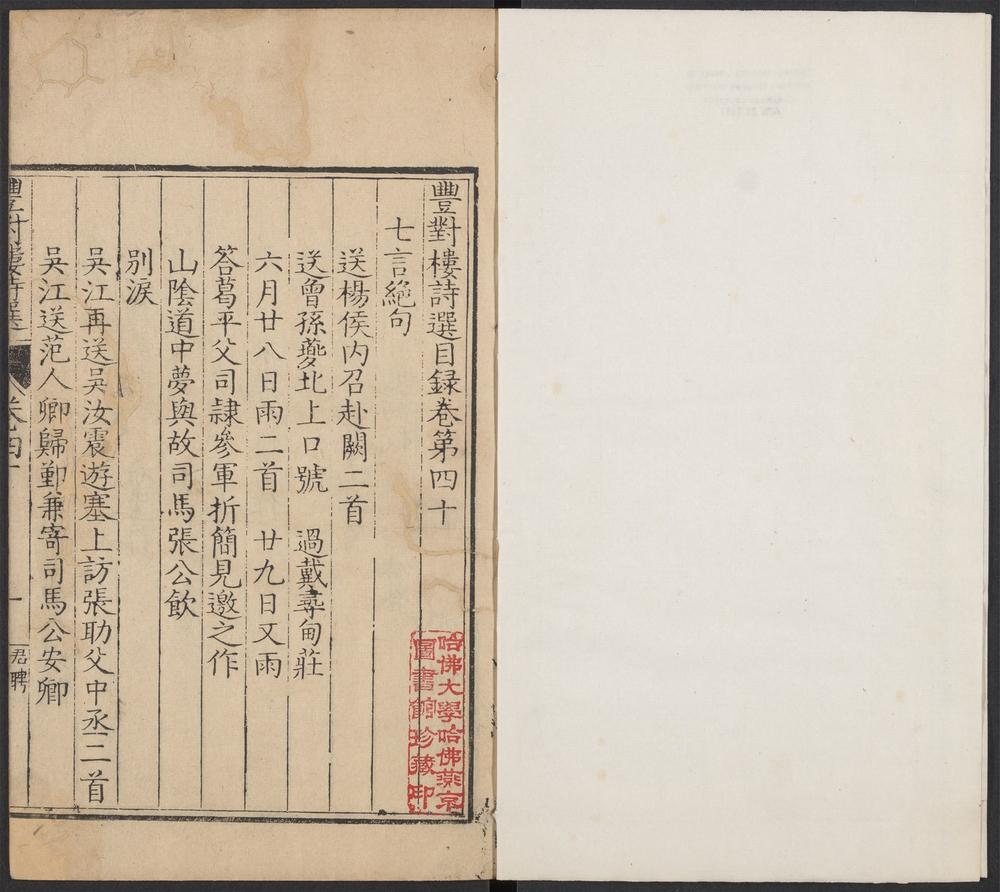 豐對樓詩選目録卷第四十
七言絶句
送楊侯内召赴闕二首
送曾孫夔北上口號　過戴尋甸莊
六月廿八日雨二首　廿九日又雨
答葛平父司隷參軍折簡見邀之作
山陰道中夢與故司馬張公飲
別淚
吳江再送吳汝震遊塞上訪張助父中丞三首
吳江送范人卿歸鄞兼寄司馬公安卿
豐對樓詩選
卷四十
一
君聘
哈佛大學哈佛燕京
圖書館珍藏印